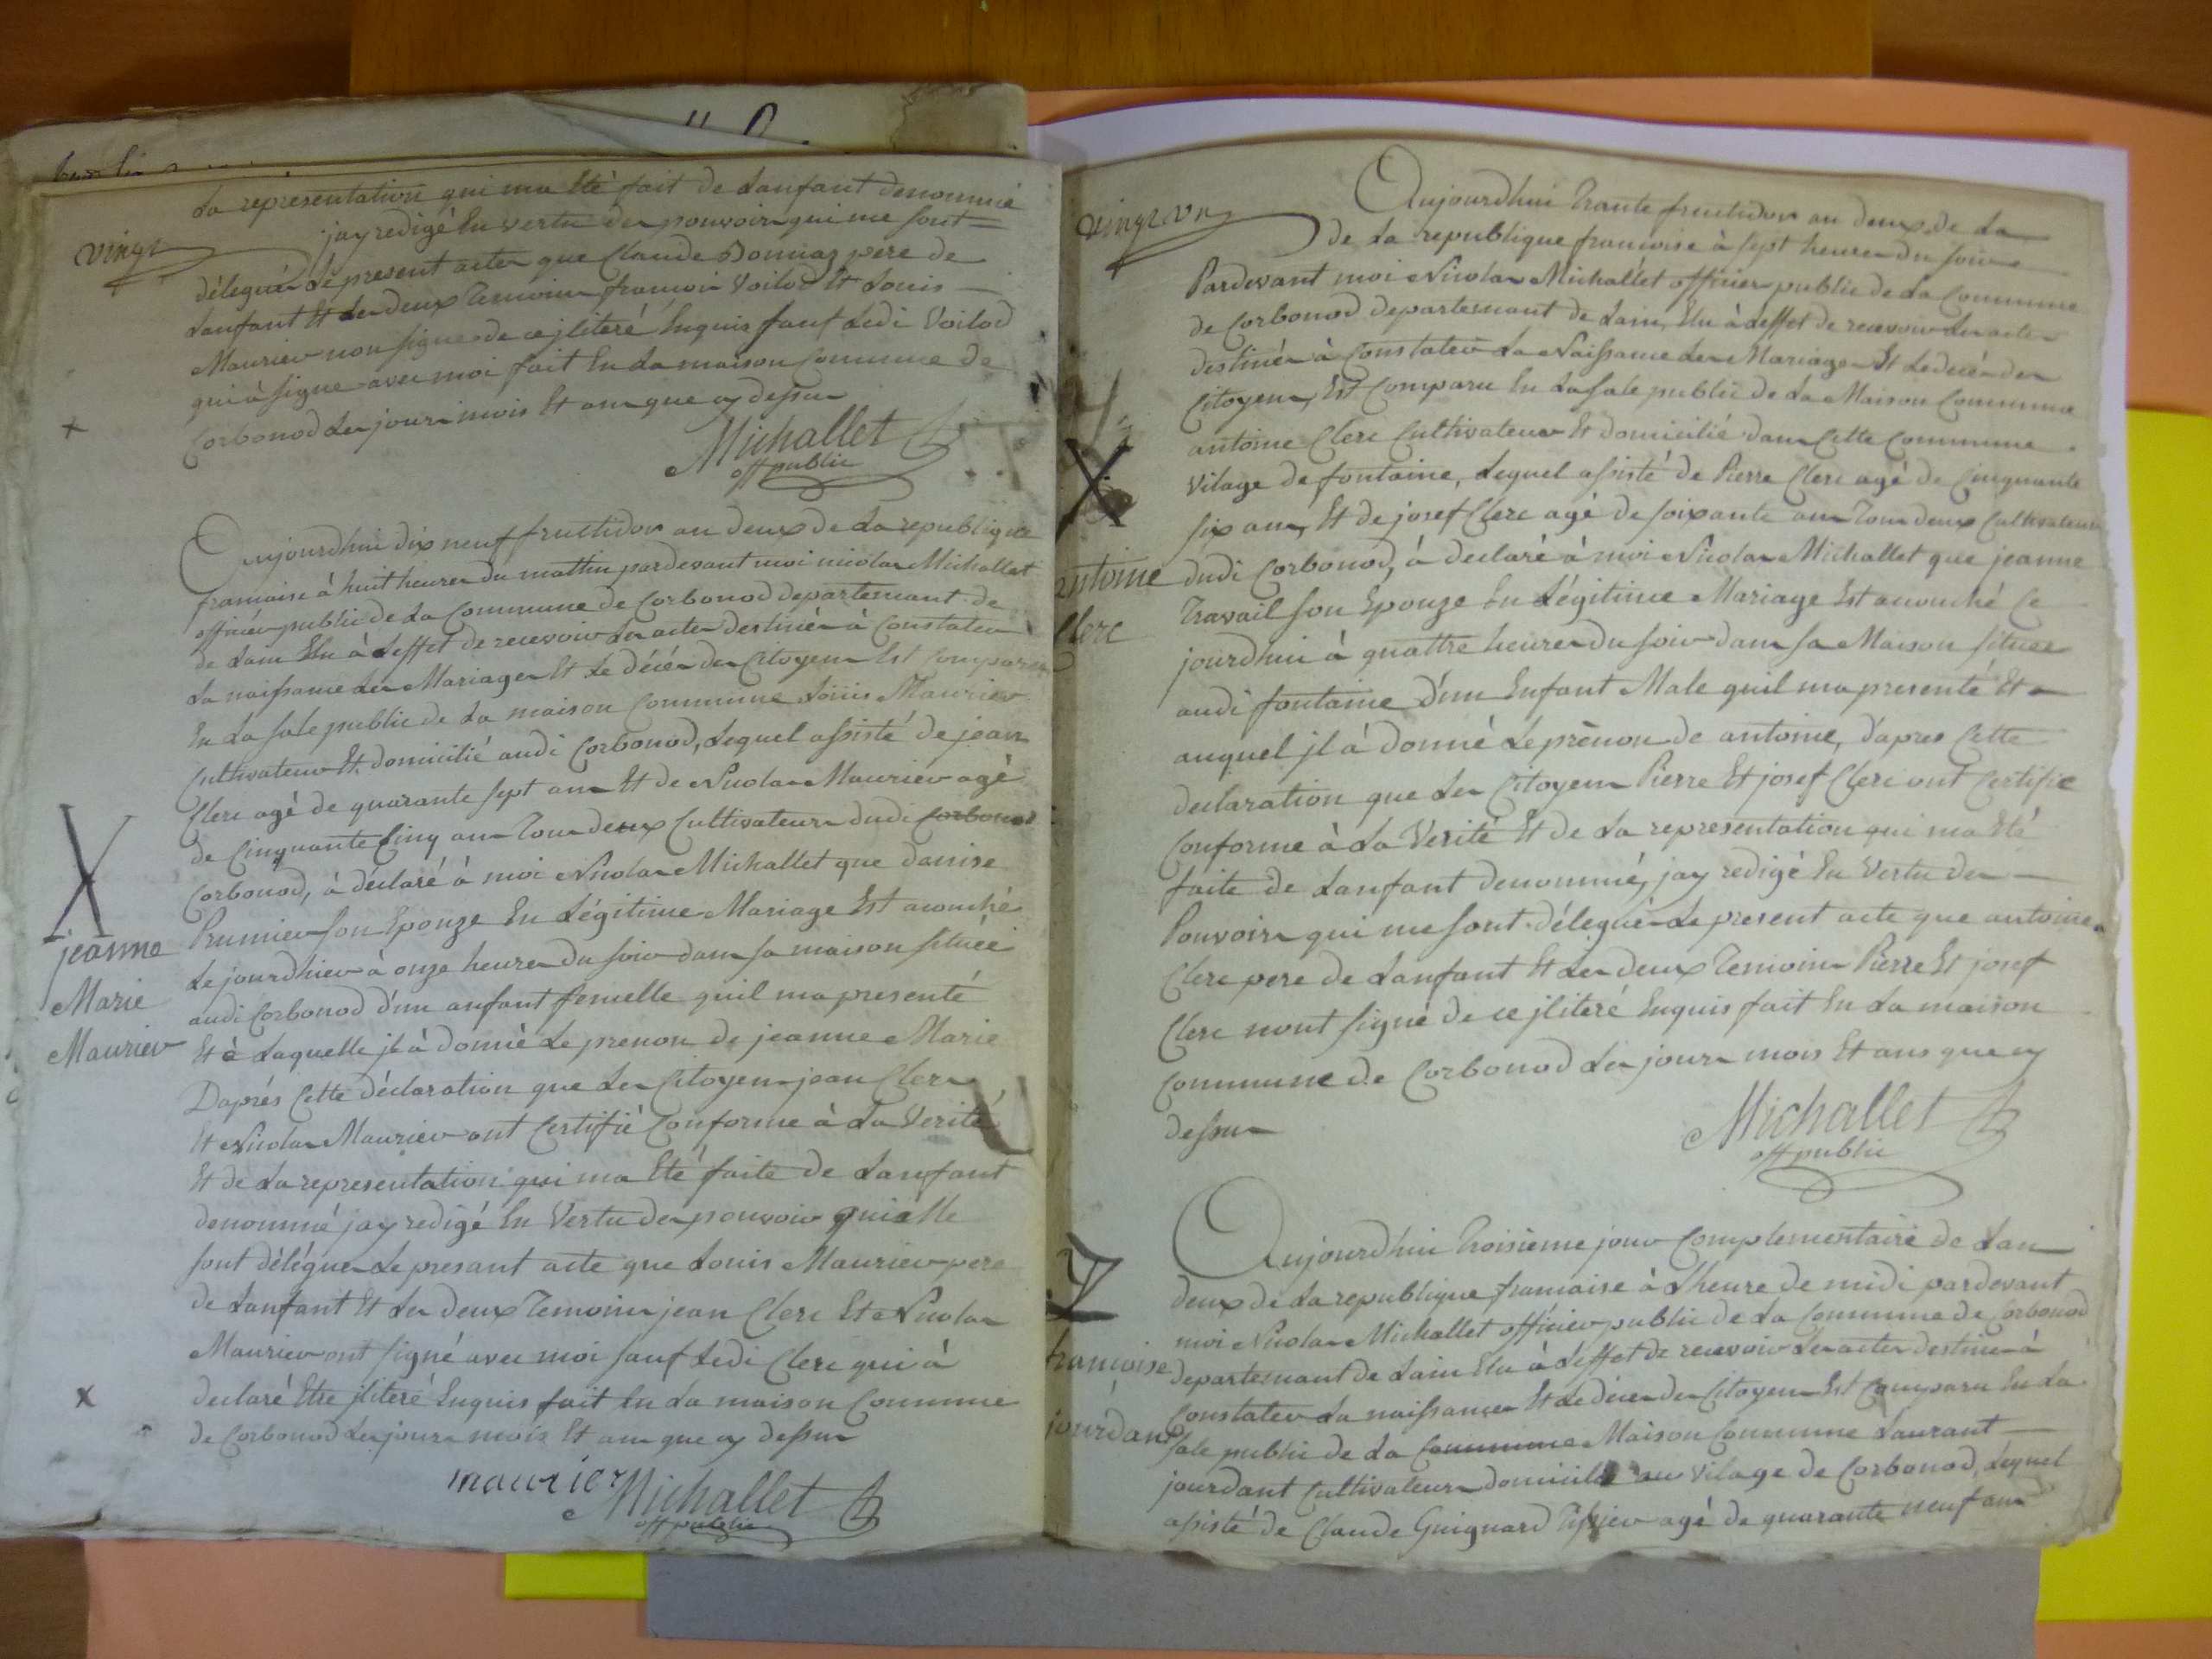 vingt
La représentation qui ma Eté fait de Lanfant denommé
jay redigé En vertu des pouvoirs qui me sont =
délegués Le present actes que Claude Domiaz pere de
Lanfant Et Les deux Temoins francoi Voilod Et Louis
Mauriev non signe de ce jliteré Enquis sauf Ledi Voilod
qui à signe avec moi fait En La maison Commune de
Corbonod Les jours mois Et ans que cy dessus
Michallet
off public
Aujourdhui dix neuf fructidor an deux de La republique
francaise à huit heures du mattin pardevant moi nicolas Michallet
officiév public de La Commune de Corbonod departemant de
de Lain Elu à Leffet de recevoir Les actes destinés à Constater
La naissance Les Mariages Et Le décés des Citoyens Est Comparu
En La sale public de La maison Commune Loüis Mauriev
Cultivateur Et domicilié audi Corbonod, Lequel assisté de jean
Clerc agé de quarante sept ans Et de Nicolas Mauriev agé
de Cinquante Cinq ans Tous deux Cultivateurs dudi Corbonod
Corbonod, à déclaré à moi Nicolas Michallet que danise
Prumiev son Epouze En Légitime Mariage Est acouché
Le jourdhiev à onze heures du soir dans sa maison située
audi Corbonod d'un anfant femelle quil ma presenté
Et à Laquelle jl à donné Le prenon de jeanne Marie
Daprés Cette déclaration que Les Citoyens jean Clerc
Et Nicolas Mauriev ont Certifié Conforme à La Verité
Et de La representation qui ma Eté faite de Lanfant
denommé jay redigé En Vertu des pouvoir qui Me
sont délégues Le presant acte que Louis Mauriev pere
de Lanfant Et Les deux Temoins jean Clerc Et Nicolas
Mauriev ont signé avec moi sauf Ledi Clerc qui à
declaré Etre jliteré Enquis fait En La maison Commune
de Corbonod Les jours mois Et ans que cy dessus
maurier
Michallet
off public
jeanne
Marie
Mauriev
vingt un
Aujourdhui Trante fructidor an deux de La
de La republique francoise à sept heures du soire
Pardevant moi Nicolas Michallét officier public de La Commune
de Corbonod departemant de Lain, Elu à Leffet de recevoir Les actes
destinés à Constater La Naissance Les Mariages Et Le décés des
Citoyens, Est Comparu En La sale public de La Maison Commune
antoine Clerc Cultivateur Et domicilié dans Cette Commune
vilage de fontaine, Lequel assisté de Pierre Clerc agé de Cinquante
six ans, Et de josef Clerc agé de soixante ans Tous deux Cultivateurs
dudi Corbonod, à declaré à moi Nicolas Michallet que jeanne
Travail son Epouze En Légitime Mariage Est acouché Ce
jourdhui à quattre heures du soir dans sa Maison située
audi fontaine d'un Enfant Male quil ma presenté Et a
auquel jl à donné Le prènon de antoine, d'apres Cette
declaration que Les Citoyens Pierre Et josef Clerc ont Certifie
Conforme à La Verité Et de La representation qui ma Eté
faite de Lanfant denommé, jay redigé En Vertu des
Pouvoirs qui me sont délegués Le present acte que antoine
Clerc pere de Lanfant Et Les deux Temoins Pierre Et josef
Clerc nont signé de ce jliteré Enquis fait En La maison
Commune de Corbonod Les jours mois Et ans que cy
dessus
Michallet
off public
antoine
Clerc
Aujourdhui Troisieme jour Complementaire de Lan
deux de La republique francaise à Lheure de midi pardevant
moi Nicolas Michallet officiev public de La Commune de Corbonod
departemant de Lain Elu à Leffet de recevoir Les actes destinés à
Constater La naissances Et Le déces des Citoyens Est Comparu En La
sale public de La Commune Maison Commune Laurant
jourdant Cultivateur domicilé au vilage de Corbonod, Lequel
asisté de Claude Guignard Tissiev agé de quarante neuf ans
francoise
jourdan